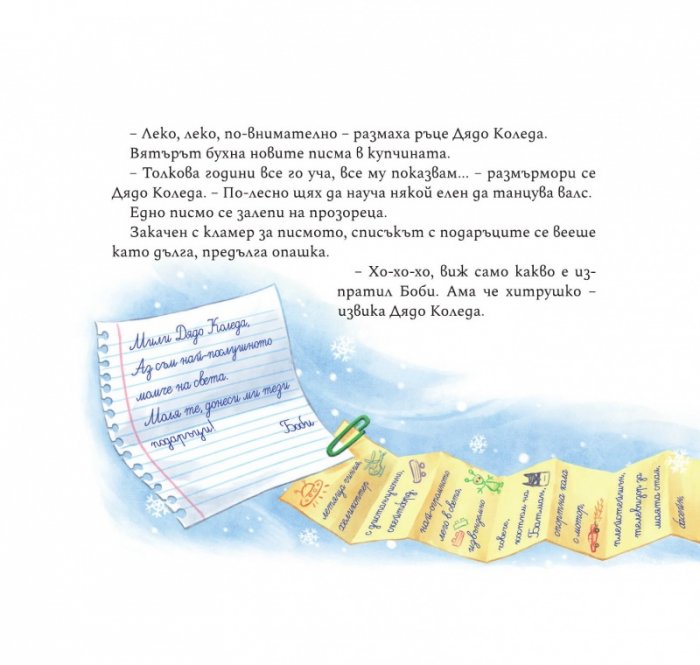 – Леко, леко, по-внимателно – размаха ръце Дядо Коледа.
Вятърът бухна новите писма в купчината.
– Толкова години все го уча, все му показвам... – размърмори се
Дядо Коледа. – По-лесно щях да науча някой елен да танцува валс.
Едно писмо се залепи на прозореца.
Закачен с кламер за писмото, списъкът с подаръците се вееше
като дълга, предълга опашка.
– Хо-хо-хо, виж само какво е из-
пратил Боби. Ама че хитрушко –
извика Дядо Коледа.
Мили Дядо Коледа,
Аз съм най-послушното
момче на света.
Моля те, донеси ми тези
подаръци!
Боби
летяща чиния,
хеликоптер
с дистанционно,
скейтборд,
най-огромното
лего в света,
извънземно
човече,
костюм на
Батман,
спортна кола
с мотор,
плейстейшън,
телевизор за
моята стая,
басейн